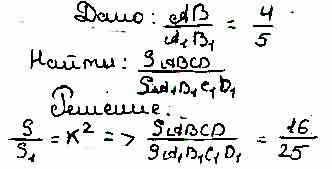 Дано: AB/A₁B₁ = 4/5
Найти: SABCD/SA₁B₁C₁D₁
Решение:
S/S₁ = K² => SABCD/SA₁B₁C₁D₁ = 16/25